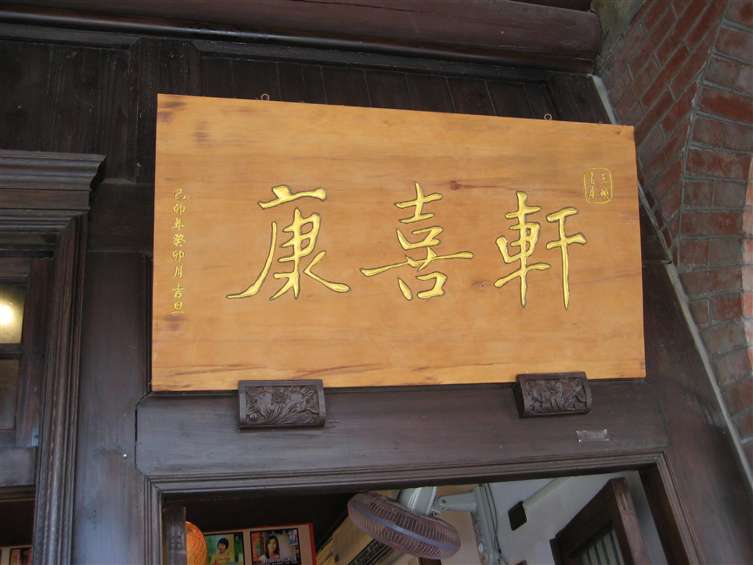 康喜軒
己卯年癸卯月吉旦